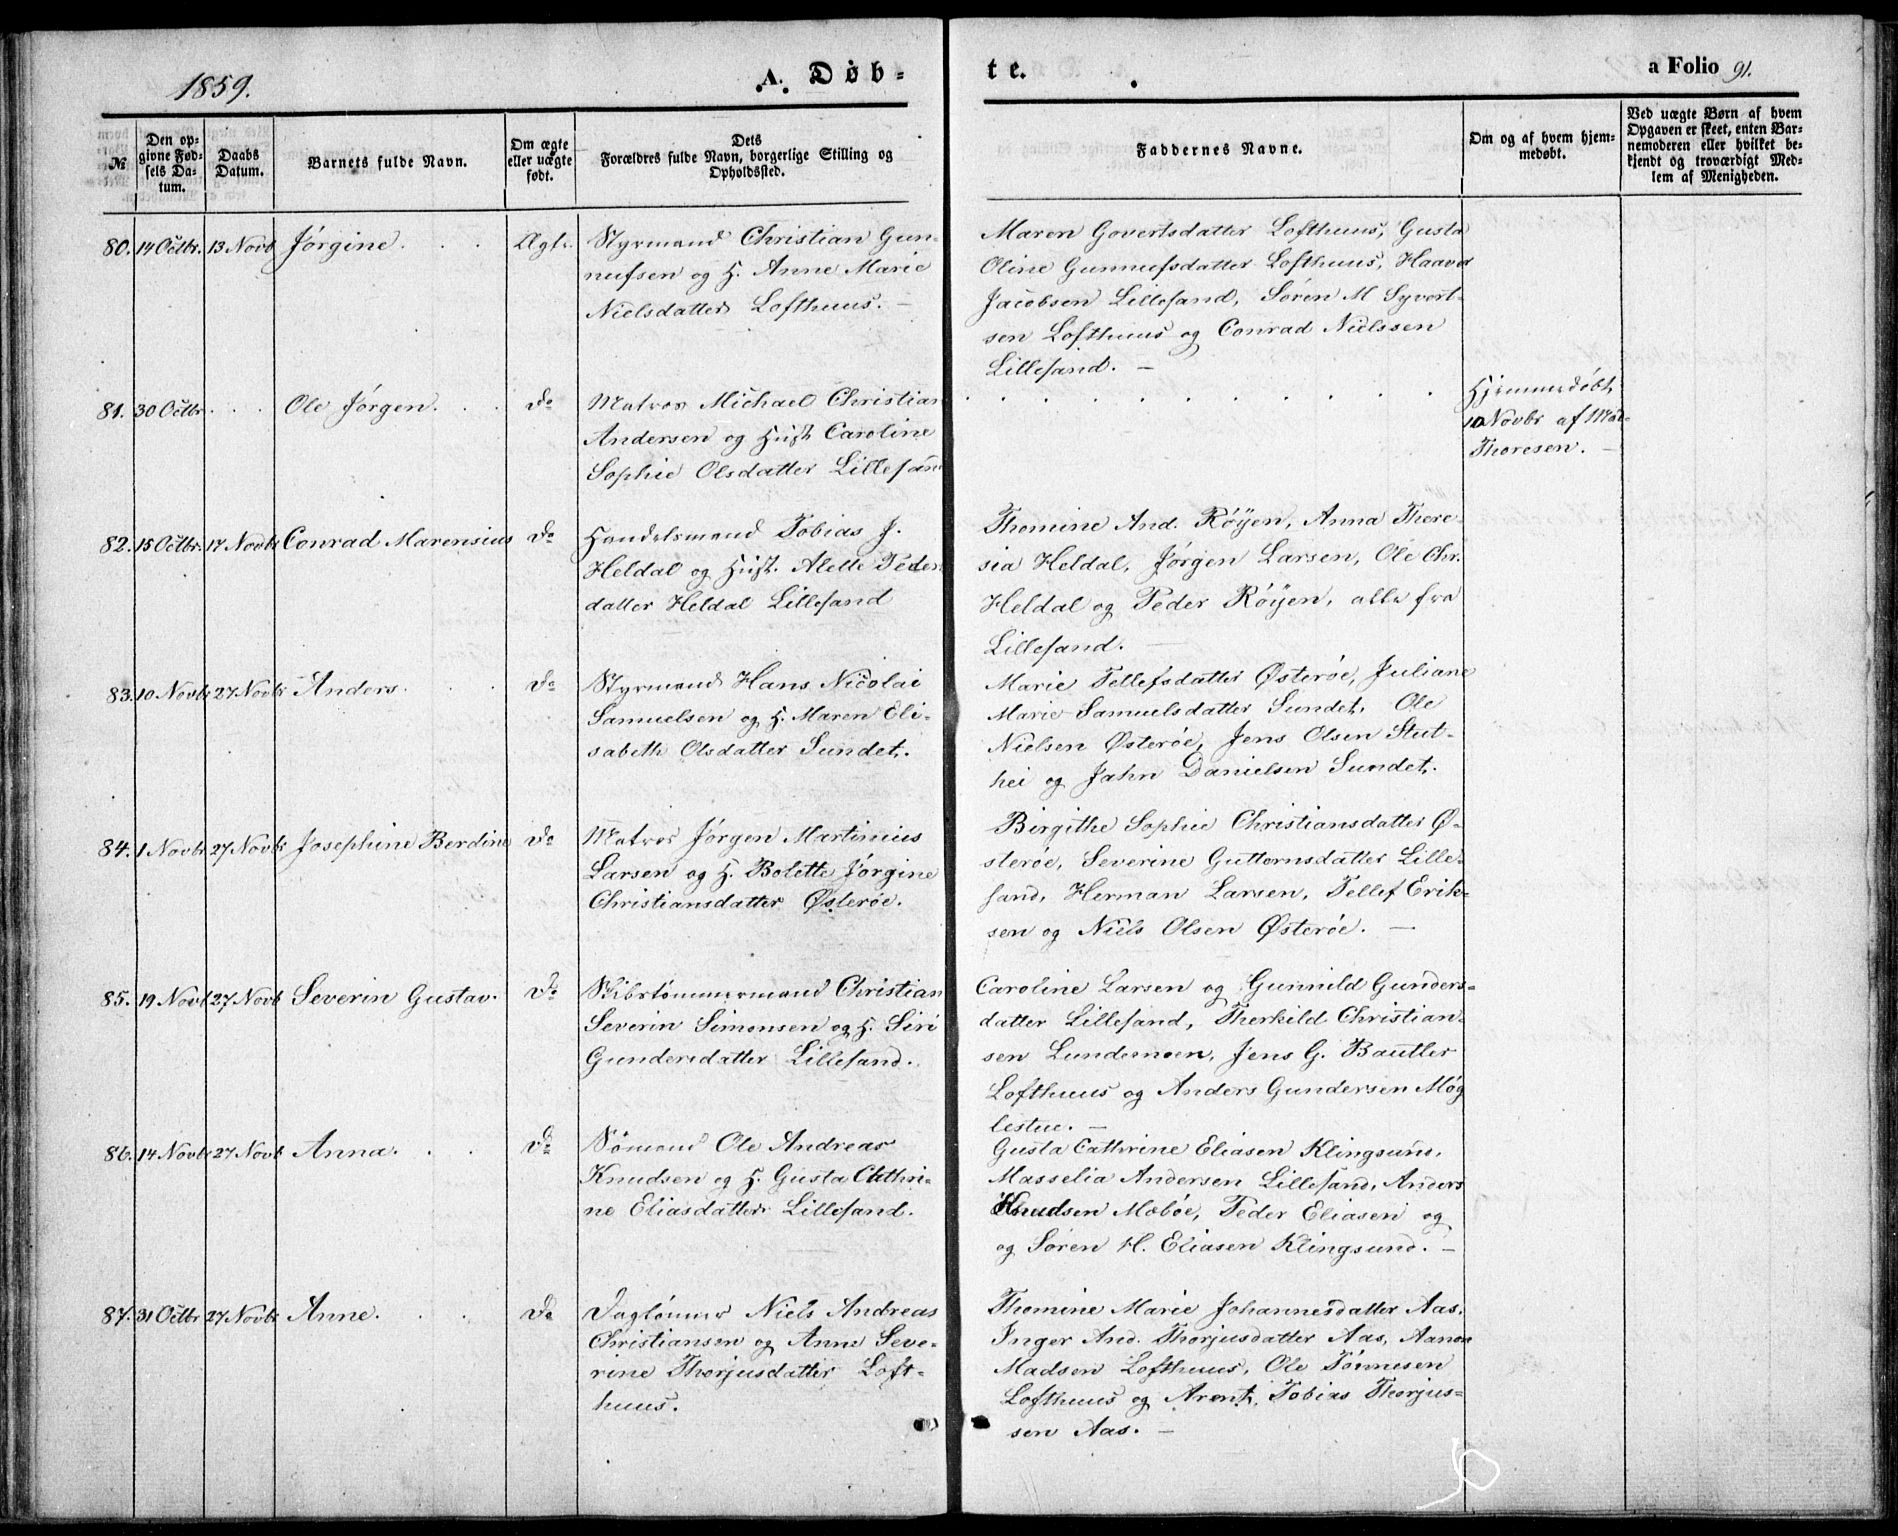 1859.
A. Døb-
te.
a Folio 91.
№
Den op-
givne Fød-
sels Da-
tum.
Daabs
Datum.
Barnets fulde Navn.
Om ægte
eller uægte
født.
Dets
Forældres fulde Navn, borgerlige Stilling og
Opholdssted.
Faddernes Navne.
Om og af hvem hjem-
medøbt.
Ved uægte Børn af hvem
Opgaven er skeet, enten Bar-
nemoderen eller hvilket be-
kjendt og troværdigt Med-
lem af Menigheden.
80. 14 Octbr. 13 Novb Jørgine. Ægte. Styrmand Christian Gun-
nufsen og H. Anne Marie
Nielsdatter Lofthuus. –
Maren Govertsdatter Lofthuus, Gusta
Oline Gunnufsdatter Lofthuus, Haavor
Jacobsen Lillesand, Søren M Syvert-
sen Lofthuus og Conrad Nielssen
Lillesand. –
81. 30 Octbr. Ole Jørgen. do Matros Michael Christian
Andersen og Hust Caroline
Sophie Olsdatter Lillesand
Hjemmedøbt
10 Novbr af Mad-
Thoresen. –
82. 15 Octbr. 17 Novbr Conrad Marensius do Handelsmand Tobias J.
Heldal og Hust. Alette Peders
datter Heldal Lillesand
Thomine And. Röÿen, Anna There-
sia Heldal, Jørgen Larsen, Ole Chr.
Heldal og Peder Röÿen, alle fra
Lillesand. –
83. 10 Novbr 27 Novbr Anders. do Styrmand Hans Nicolai
Samuelsen og H. Maren Eli-
sabeth Olsdatter Sundet.
Marie Tellefsdatter Østerøe, Juliane
Marie Samuelsdatter Sundet, Ole
Nielsen Østerøe, Jens Olsen Stut-
hei og Jahn Danielsen Sundet.
84. 1 Novbr 27 Novbr Josephine Berdine do Matros Jørgen Martinius
Larsen og H. Bolette Jørgine
Christiansdatter Østerøe.
Birgithe Sophie Christiansdatter Ø-
sterøe, Severine Guttormsdatter Lille-
sand, Herman Larsen, Tellef Erik-
sen og Niels Olsen Østerøe. –
85. 19 Novb 27 Novb Severin Gustav. do Skibstømmermand Christian
Severin Simonsen og H. Siri
Gundersdatter Lillesand.
Caroline Larsen og Gunnild Gunders-
datter Lillesand, Therkild Christian-
sen Lundemoen, Jens G. Bautler
Lofthuus og Anders Gundersen Møg
lestue. –
86. 14 Novbr 27 Novb Anna. do Sømand Ole Andreas
Knudsen og H. Gusta Cathri-
ne Eliasdatter Lillesand.
Gusta Cathrine Eliasen Klingsund,
Masselia Andersen Lillesand, Anders
Knudsen Moboe, Peder Eliasen og
og Søren H. Eliasen Klingsund. –
87. 31 Octbr 27 Novbr Anne. do Daglønner Niels Andreas
Christiansen og Anne Seve-
rine Thorjusdatter Loft-
huus.
Thomine Marie Johannesdatter Aas,
Inger And. Thorjusdatter Aas, Aanon
Madsen Lofthuus, Ole Tønnesen
Lofthuus og Arent Tobias Thorjus-
sen Aas. –